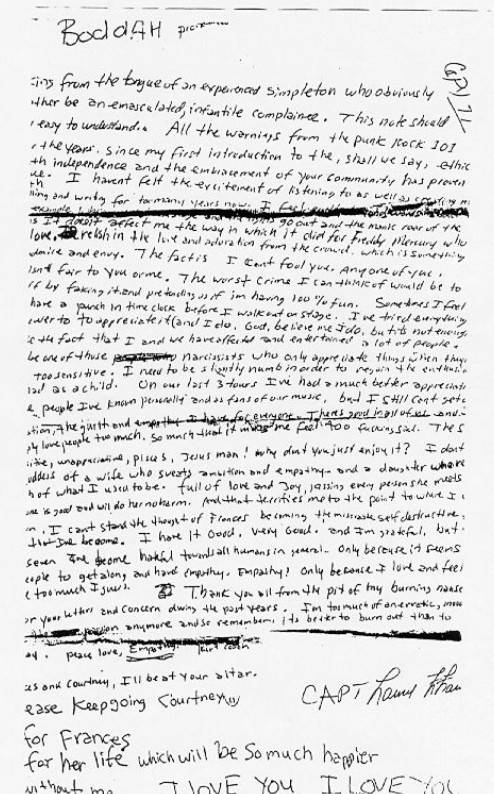 BoddAH
ing from the tongue of an experienced simpleton who obviously
ther be an emasculated, infantile complainee. This note should
easy to understand. All the warnings from the punk Rock 101
the years. since my first introduction to the, shall we say, ethic
th independence and the embracement of your community has proven
ue. I havent felt the excitement of listening to as well as creating m
hing and writing for too many years now. I feel
go out and the manic roar of the
is It doesnt affect me the way in which it did for Freddy Mercury who
love, relish in the love and adoration from the crowd. which is something
admire and envy. The fact is I cant fool you. Any one of you.
isnt fair to you or me. The worst crime I can think of would be to
ff by faking it and pretending as if im having 100% fun. Sometimes I feel
have a punch in time clock before I walk out on stage. I've tried everything
ower to to appreciate it (and I do, God, believe me I do, but its not enough
the fact that I and we have affected and entertained a lot of people.
be one of those narcissists who only appreciate things when they
too sensitive. I need to be slightly numb in order to regain the enthusia
had as a child. On our last 3 tours I've had a much better appreciati
people I've known personally and as fans of our music, but I still cant get o
tion, the guilt and empathy I have for everyone. There's good in all of us and
ly love people too much. So much that it makes me feel too fucking sad. The s
itive, unappreciative, pisces, Jesus man! why dont you just enjoy it? I dont
oddess of a wife who sweats ambition and empathy. and a daughter who re
h of what I used to be. full of love and joy, kissing every person she meets
one is good and will do her no harm. And that terrifies me to the point to where I
I cant stand the thought of Frances becoming the miserable self destructive,
that Ive become. I have it Good, very Good. and I'm grateful, but
seven Ive become hateful towards all humans in general. Only because it seems
eople to get along and have empathy. Empathy! Only because I love and feel
e too much I guess. Thank you all from the pit of my burning nause
or your letters and concern during the past years. I'm too much of an erratic, moo
passion anymore and so remember, its better to burn out than to
ay. peace love, Empathy. Kurt Cobain
es and Courtney, I'll be at your altar.
ease Keep going Courtney
for Frances
for her life which will be so much happier
without me. I LOVE YOU I LOVE YOU
CAPT